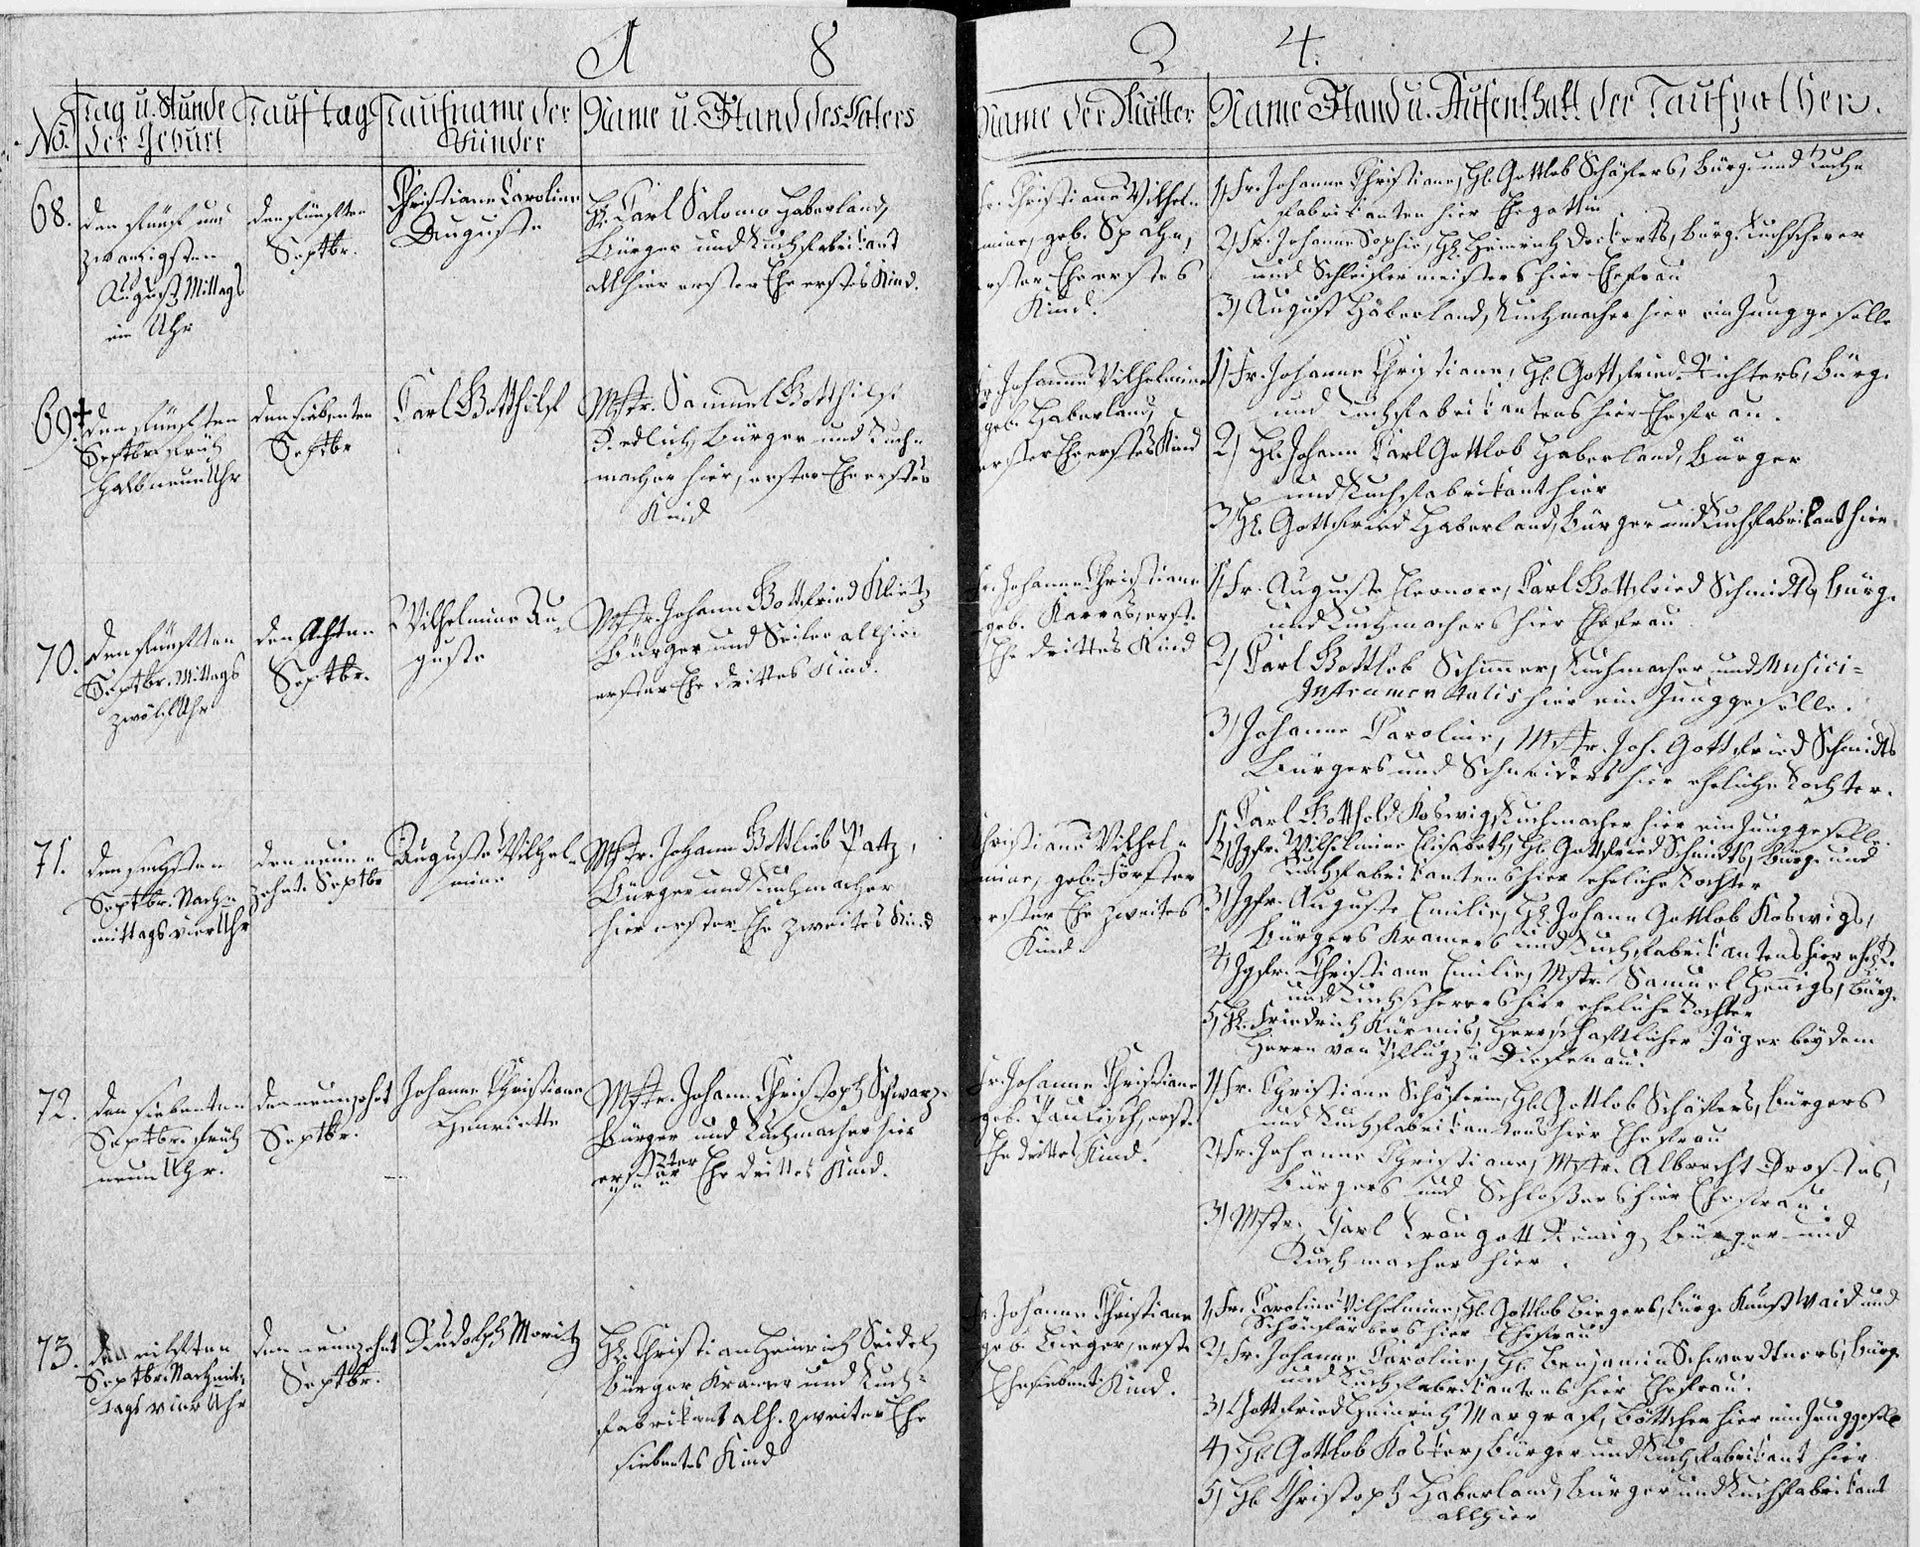 A 8 2 4.
No. Tag u. Stunde der Geburt
Tauftag
Taufname der Kinder
Name u. Stand des Vaters
Name der Mutter
Name Stand u. Aufenthalt der Taufpathen.
68.
den fünf und
zwanzigsten
August Mittags
ein Uhr
den fünften
Septbr.
Christiane Caroline
Auguste
Hr. Carl Salomo Haberland,
Bürger und Tuchfabrikant
allhier erster Ehe erstes Kind.
Fr. Christiane Wilhel-
mine, geb. Spähn,
erster Ehe erstes
Kind.
1, Fr. Johanne Christiane, Hl. Gottlob Schäfers, Bürg. und Tuch-
fabrikanten hier Ehegattin
2, Fr. Johanne Sophie, Hl. Heinrich Deckerts, Bürg. Tuchscherer
und Schleifermeisters hier Ehefrau
3, August Haberland, Tuchmacher hier ein Junggeselle
69.
den fünften
Septbr. früh
halb neun Uhr
den siebenten
Septbr
Carl Gotthilf
Mstr. Samuel Gotthilf
Bürger und Tuch-
macher hier, erster Ehe erstes
Kind
Fr. Johanne Wilhelmine
geb. Haberland,
erster Ehe erstes Kind
1, Fr. Johanne Christiane, Hl. Gottfried Richters, Bürg.
und Tuchfabrikantens hier Ehefrau.
2, Hl. Johann Carl Gottlob Haberland, Bürger
und Tuchfabrikant hier
3, Hl. Gottfried Haberland, Bürger und Tuchfabrikant hier.
70.
den fünften
Septbr. Mittags
zwölf Uhr
den Achten
Septbr.
Wilhelmine Au-
guste
Mstr. Johann Gottfried
Bürger und Seiler allhier
erster Ehe drittes Kind.
Fr. Johanne Christiane
geb. Karras, erst.
Ehe drittes Kind
1, Fr. Auguste Eleonore, Carl Gottfried Schmidts, Bürg.
und Tuchmachers hier Ehefrau
2, Carl Gottlob Schimmer, Tuchmacher und Musici-
Instrumentalis hier ein Junggeselle.
3, Johanne Caroline, Mstr. Joh. Gottfried Schmidts
Bürgers und Schneiders hier eheliche Tochter.
71.
den sechsten
Septbr. Nach-
mittags vier Uhr
den neun-
zehnt. Septbr
Auguste Wilhel-
mine
Mstr. Johann Gottlieb Patz,
Bürger und Tuchmacher
hier erster Ehe zweites Kind
Christiane Wilhel-
mine, geb. Förster
erster Ehe zweites
Kind.
1, Carl Gotthold Koswig, Tuchmacher hier ein Junggeselle.
2, Jgfr. Wilhelmine Elisabeth, Hl. Gottfried Schmidts, Bürg. und
Tuchfabrikantens hier eheliche Tochter
3, Jgfr. Auguste Emilie, Hl. Johann Gottlob Koswigs,
Bürgers Kramers und Tuchfabrikantens hier ehel. T.
4, Jgfr. Christiane Emilie, Mstr. Samuel Hennigs, Bürg.
und Tuchscherers hier eheliche Tochter
5, Hl. Friedrich Kürmis, herrschaftlicher Jäger bey dem
Herrn von Pflugk zu
72.
den siebenten
Septbr. früh
neun Uhr.
den neunzehnt
Septbr.
Johanne Christiane
Henriette
Mstr. Johann Christoph Schwarz,
Bürger und Tuchmacher hier
erster 2ter Ehe drittes Kind.
Fr. Johanne Christiane
geb. Paulisch, erst.
Ehe drittes Kind.
1, Fr. Christiane Schäferin, Hl. Gottlob Schäfers, Bürgers
und Tuchfabrikantens hier Ehefrau
2, Fr. Johanne Christiane, Mstr. Albrecht Drostes,
Bürgers und Schloßers hier Ehefrau.
3, Mstr. Carl Traugott Bürger und
Tuchmacher hier.
73.
den achten
Septbr. Nachmit-
tags vier Uhr
den neunzehnt
Septbr.
Rudolph Moritz
Hl. Christian Heinrich Seidel,
Bürger Kramer und Tuch-
fabrikant allh. zweiter Ehe
siebentes Kind
Fr. Johanne Christiane
geb. Bieger, erste
Ehe siebent. Kind.
1, Fr. Caroline Wilhelmine, Hl. Gottlob Biegers, Bürg. Kunst Waid und
Schönfärbers hier Ehefrau
2, Fr. Johanne Caroline, Hl. Benjamin Schwerdtners, Bürg.
und Tuchfabrikantens hier Ehefrau.
3, Gottfried Heinrich Margraf, Böttcher hier ein Junggesell
4, Hl. Gottlob Köster, Bürger und Tuchfabrikant hier
5, Hl. Christoph Haberland, Bürger und Tuchfabrikant
allhier